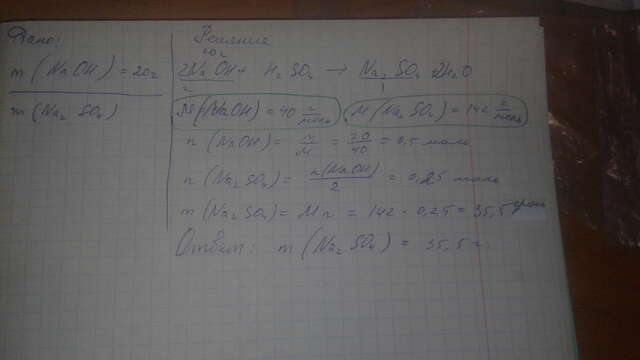 Дано:
m (NaOH) = 20г
m (Na₂SO₄)
Решение
20г
2NaOH + H₂SO₄ → Na₂SO₄ + 2H₂O
2 1
M(NaOH) = 40 г/моль M(Na₂SO₄) = 142 г/моль
n (NaOH) = m/M = 20/40 = 0,5 моль
n (Na₂SO₄) = n(NaOH)/2 = 0,25 моль
m (Na₂SO₄) = Mn = 142 · 0,25 = 35,5 грамм
Ответ: m (Na₂SO₄) = 35,5 г.